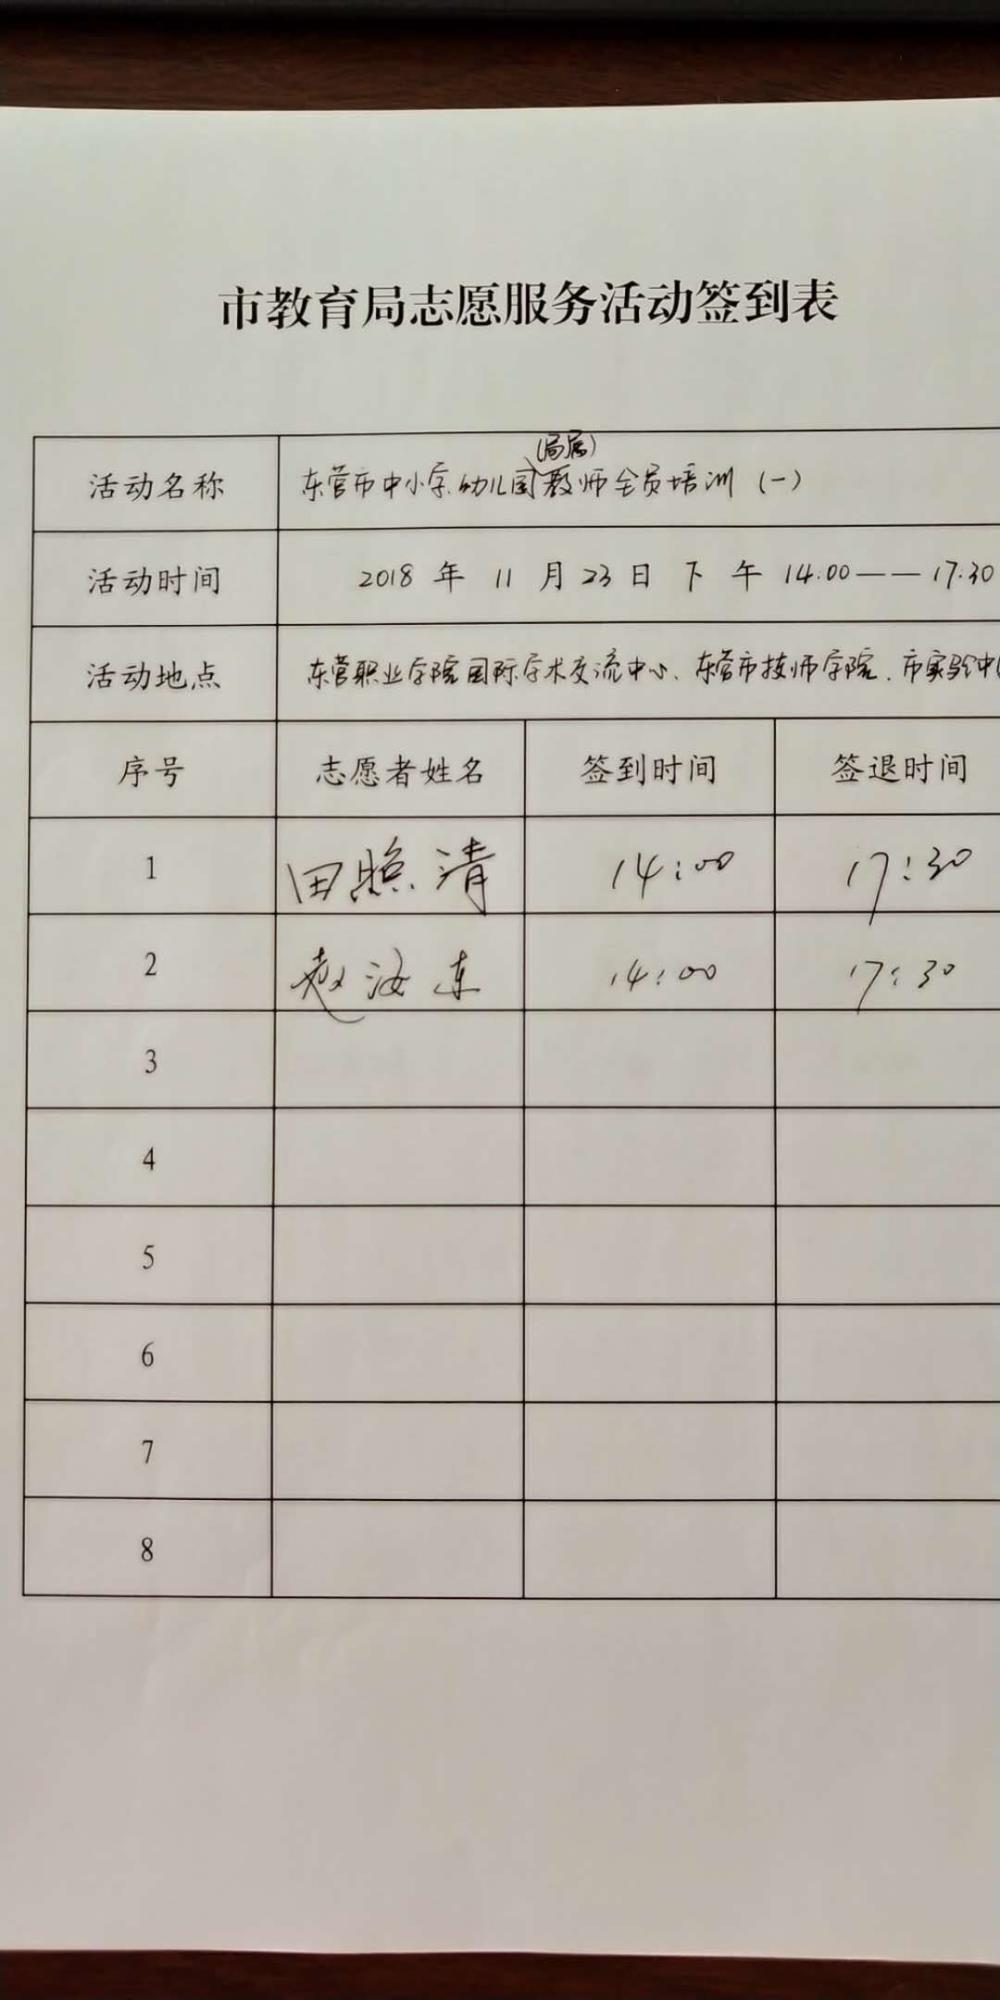 市教育局志愿服务活动签到表
(局属)
活动名称 东营市中小学幼儿园教师全员培训(一)
活动时间 2018年11月23日下午14:00——17:30
活动地点 东营职业学院国际学术交流中心、东营市技师学院、市实验中
序号 志愿者姓名 签到时间 签退时间
1 田照清 14:00 17:30
2 赵海东 14:00 17:30
3
4
5
6
7
8